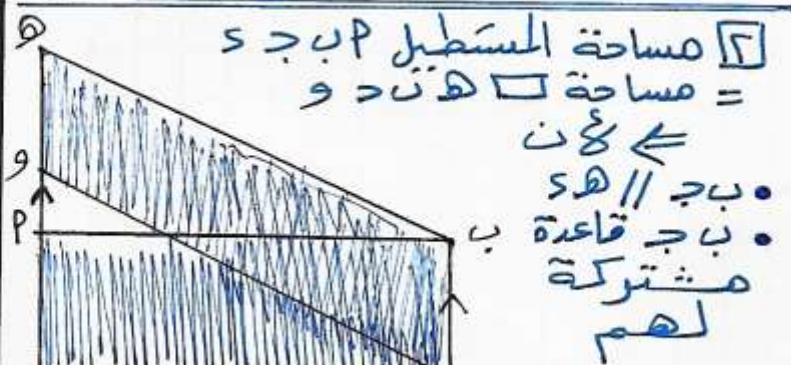 ٢ مساحة المستطيل P ب ج s
= مساحة ▱ ه ب ج و
⇐ لأن
• ب ج // ه s
• ب ج قاعدة
مشتركة
لهم
ه
و
P
ب